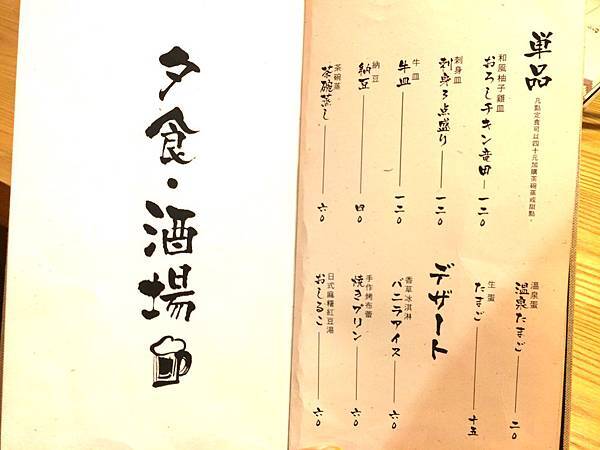 夕食・酒場
単品
凡點定食可以四十元加購茶碗蒸或甜點。
和風柚子雞皿
おろしチキン竜田 一二〇
刺身皿
刺身3点盛り 一二〇
牛皿
牛皿 一二〇
納豆
納豆 四〇
茶碗蒸
茶碗蒸し 六〇
温泉蛋
温泉たまご 二〇
生蛋
たまご 十五
デザート
香草冰淇淋
バニラアイス 六〇
手作烤布蕾
焼きプリン 六〇
日式麻糬紅豆湯
おしるこ 六〇